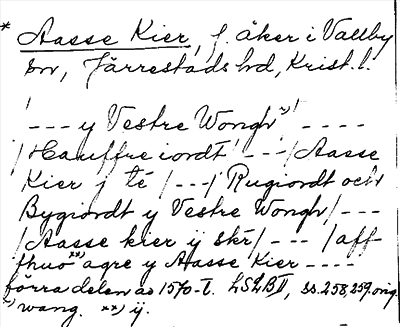 * Aasse Kier, f. åker i Vallby
sn, Järrestads hd, Krist. l.
/--- y Vestre Wongh*)/ ----
/Hauffre iordt/ ---/Aasse
Kier j té /---/ Rugiordt och
Bygiordt y Vestre Wongh/---
/Aasse kier ij skr/ --- /aff-
thuo**) agre y Aasse Kier ----
förra delen av 1570-t. LSLB II, ss. 258, 259 orig.
*) wang. **) ij.